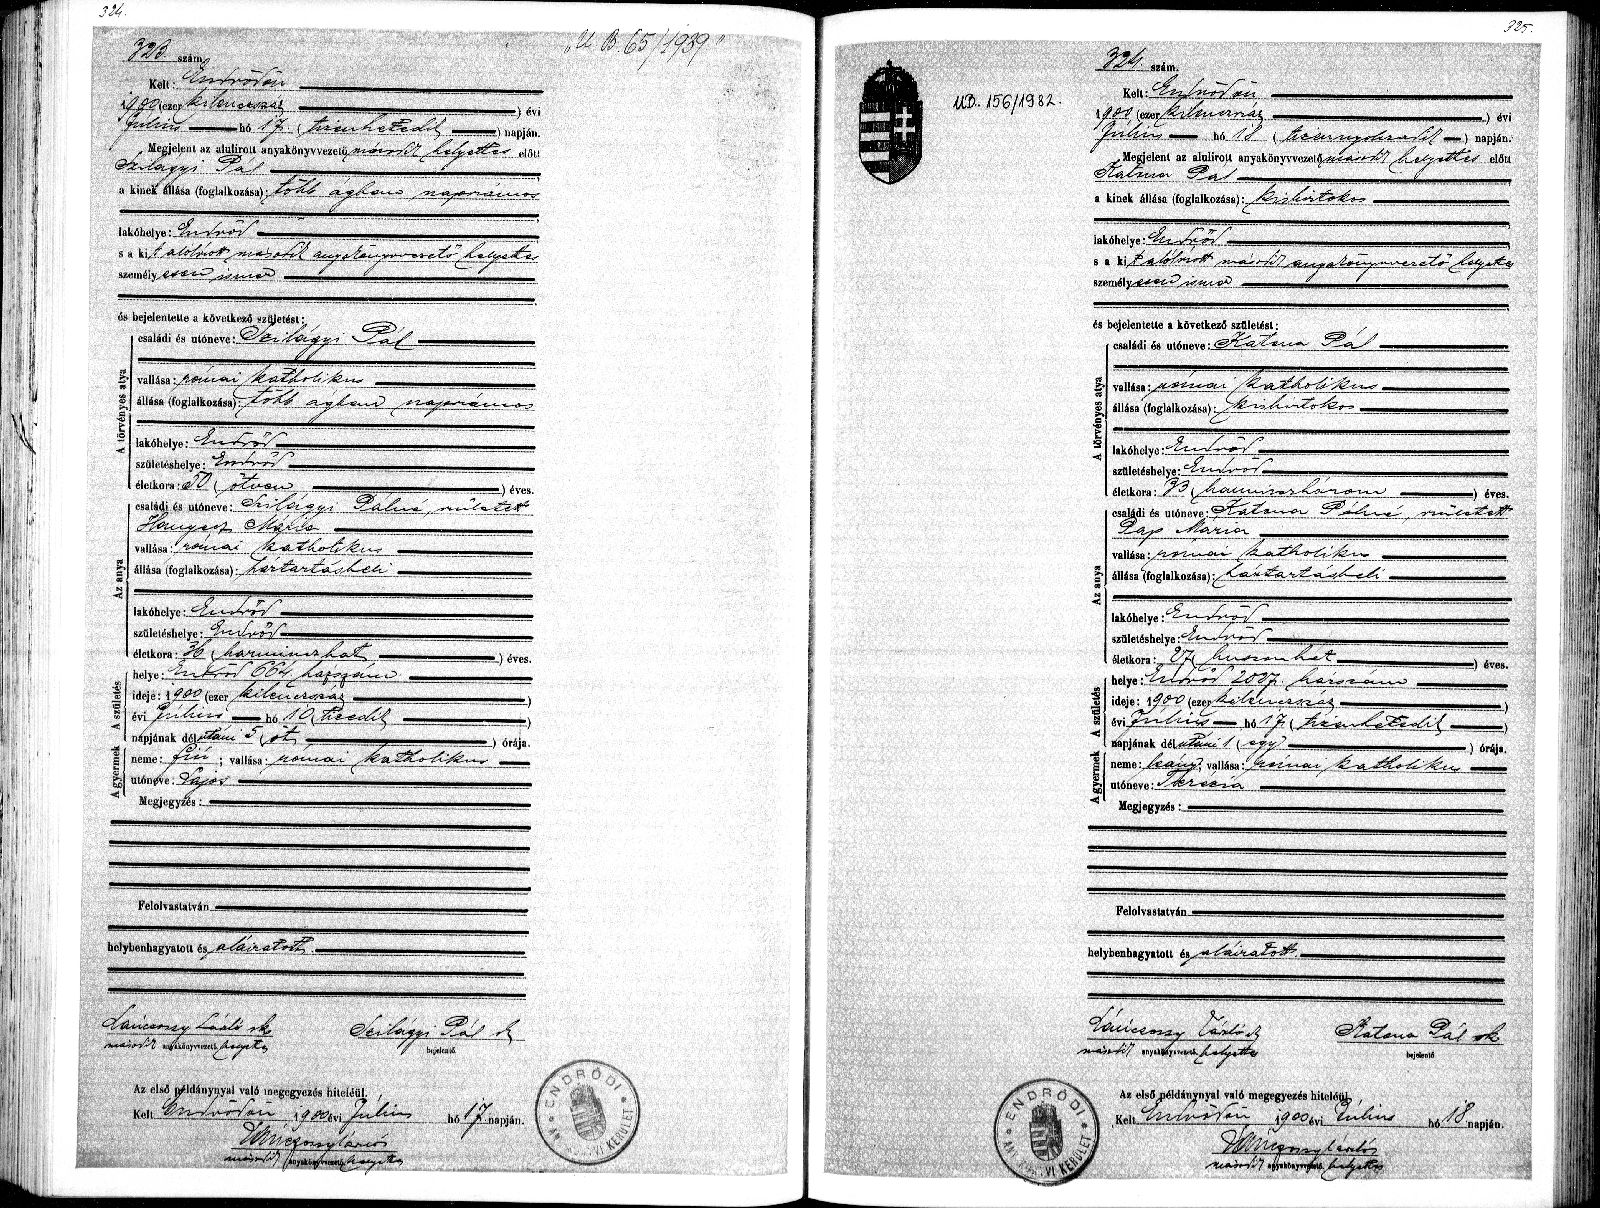 324.
323. szám.
"U. B. 65/1939"
Kelt: Endrődön
1900 (ezer kilencszáz) évi
Július hó 17. (tizenhetedik) napján.
Megjelent az alulirott anyakönyvvezető második helyettes előtt
Szilágyi Pál
a kinek állása (foglalkozása): több ágban napszámos
lakóhelye: Endrőd
s a kit alólirott második anyakönyvvezető helyettes
személyesen ismer
és bejelentette a következő születést:
A törvényes atya
családi és utóneve: Szilágyi Pál
vallása: római katholikus
állása (foglalkozása): több ágban napszámos
lakóhelye: Endrőd
születéshelye: Endrőd
életkora: 50 (ötven) éves.
Az anya
családi és utóneve: Szilágyi Pálné, született
Mária
vallása: római katholikus
állása (foglalkozása): háztartásbeli
lakóhelye: Endrőd
születéshelye: Endrőd
életkora: 36 (harminczhat) éves.
A születés
helye: Endrőd 664. házszám
ideje: 1900 (ezer kilencszáz)
évi Július hó 10 (tizedik)
napjának délutáni 5 (öt) órája.
A gyermek
neme: fiú; vallása: római katholikus
utóneve: Lajos
Megjegyzés:
Felolvastatván
helybenhagyatott és aláiratott.
Lánczossy László sk
második anyakönyvvezető helyettes
Szilágyi Pál sk
bejelentő.
Az első példánynyal való megegyezés hiteléül.
Kelt Endrődön 1900 évi Július hó 17 napján.
második anyakönyvvezető helyettes
ENDRŐDI ANYAKÖNYVI KERÜLET
325.
324. szám.
UB. 156/1982.
Kelt: Endrődön
1900 (ezer kilencszáz) évi
Július hó 18 (tizennyolczadik) napján.
Megjelent az alulirott anyakönyvvezető második helyettes előtt
Katona Pál
a kinek állása (foglalkozása): kisbirtokos
lakóhelye: Endrőd
s a kit alólirott második anyakönyvvezető helyettes
személyesen ismer
és bejelentette a következő születést:
A törvényes atya
családi és utóneve: Katona Pál
vallása: római katholikus
állása (foglalkozása): kisbirtokos
lakóhelye: Endrőd
születéshelye: Endrőd
életkora: 33 (harminczhárom) éves.
Az anya
családi és utóneve: Katona Pálné, született
Pap Mária
vallása: római katholikus
állása (foglalkozása): háztartásbeli
lakóhelye: Endrőd
születéshelye: Endrőd
életkora: éves.
A születés
helye: Endrőd 2007. házszám
ideje: 1900 (ezer kilencszáz)
évi Július hó 17 (tizenhetedik)
napjának délutáni 1 (egy) órája.
A gyermek
neme: leány; vallása: római katholikus
utóneve: Terézia
Megjegyzés:
Felolvastatván
helybenhagyatott és aláiratott.
Lánczossy László sk
második anyakönyvvezető helyettes
Katona Pál sk
bejelentő
Az első példánynyal való megegyezés hiteléül.
Kelt Endrődön 1900 évi Július hó 18 napján.
második anyakönyvvezető helyettes
ENDRŐDI ANYAKÖNYVI KERÜLET